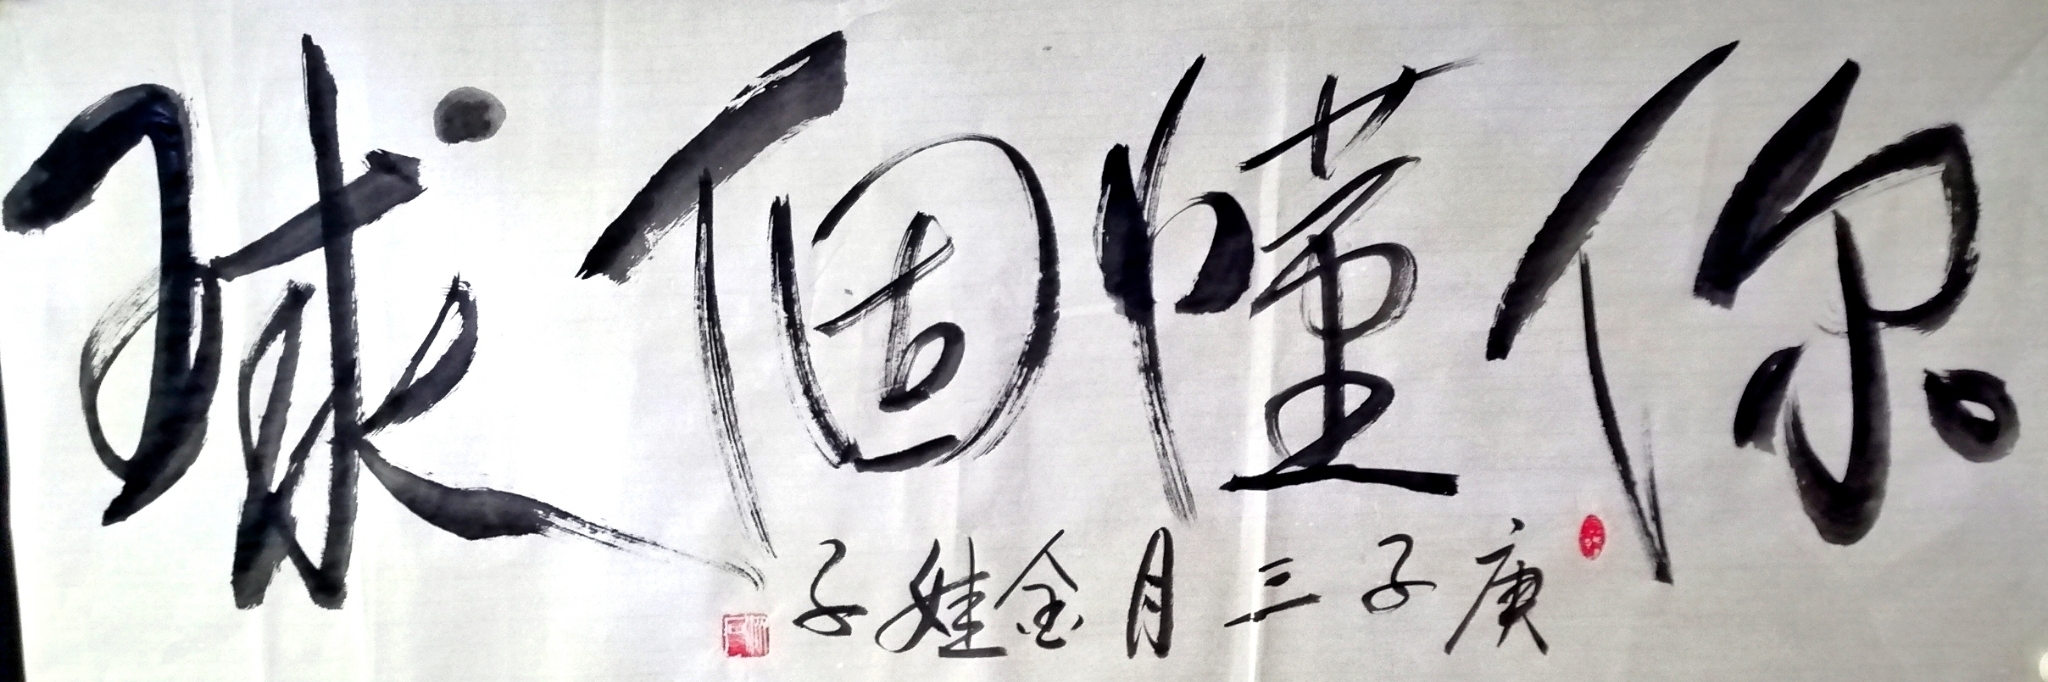 你懂個球
庚子三月金娃子